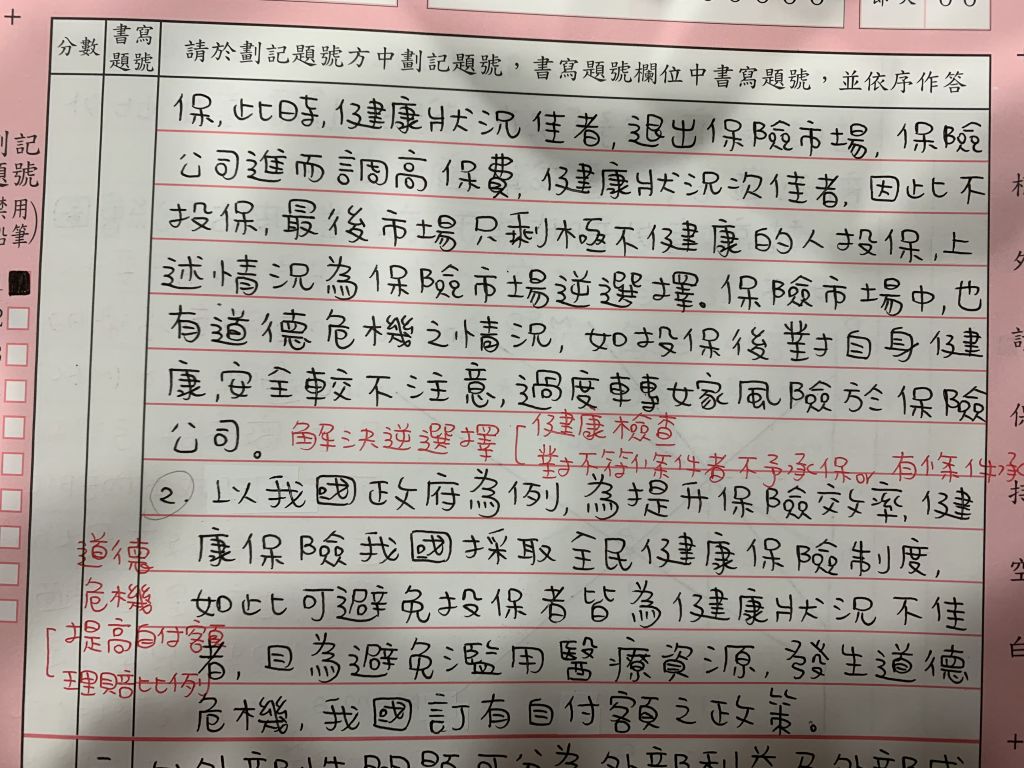 分數
書寫題號
請於劃記題號方中劃記題號，書寫題號欄位中書寫題號，並依序作答
保,此時,健康狀況佳者,退出保險市場,保險
公司進而調高保費,健康狀況次佳者,因此不
投保,最後市場只剩極不健康的人投保,上
述情況為保險市場逆選擇。保險市場中,也
有道德危機之情況,如投保後對自身健
康,安全較不注意,過度轉嫁風險於保險
公司。
解決逆選擇
健康檢查
對不符條件者不予承保or有條件承
2. 以我國政府為例,為提升保險效率,健
康保險我國採取全民健康保險制度,
如此可避免投保者皆為健康狀況不佳
者,且為避免濫用醫療資源,發生道德
危機,我國訂有自付額之政策。
道德
危機
提高自付額
理賠比例